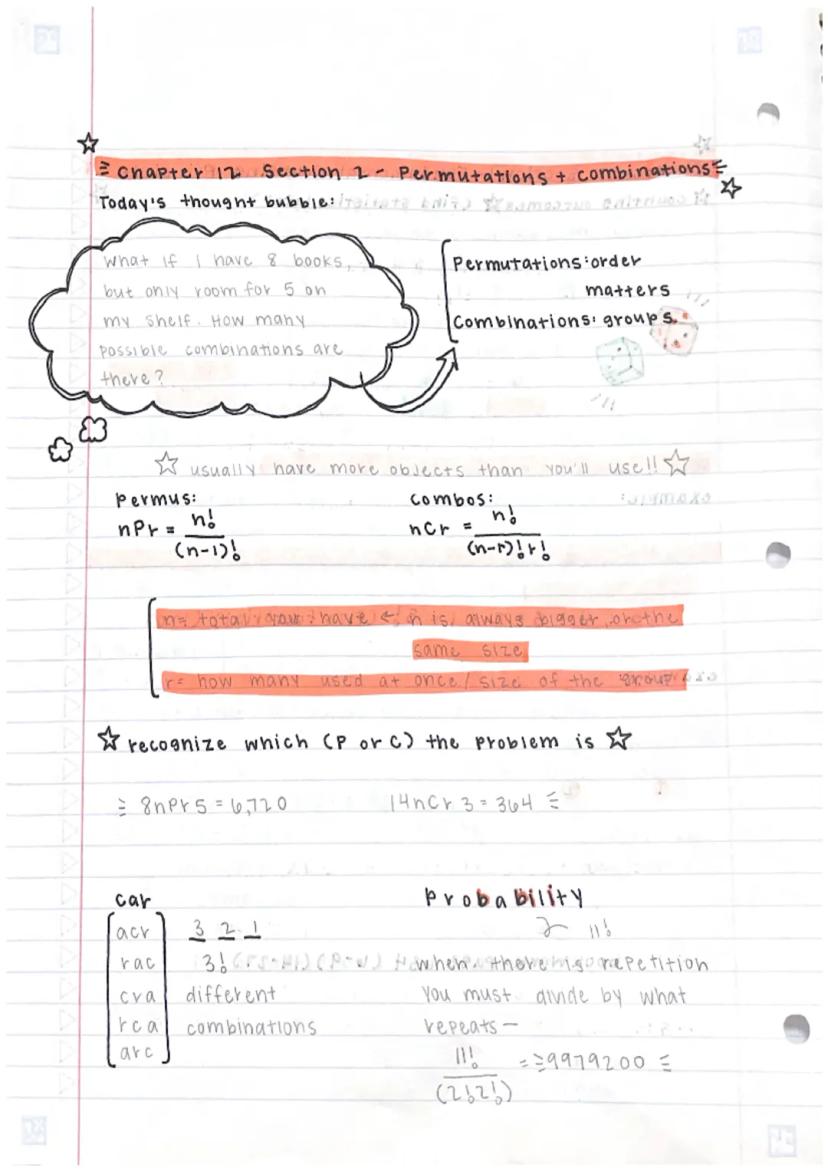 Chapter 12 Section 2 - Permutations + combinations
Today's thought bubble:
What if I have 8 books,
but only room for 5 on
my shelf. How many
possible combinations are
there?
Permutations: order
matters
Combinations: groups
usually have more objects than you'll use!!
Permus:
nPr = n!/(n-1)!
Combos:
nCr = n!/(n-r)!r!
n= total you have ← n is always bigger or the
same size
r= how many used at once / size of the group
recognize which (P or C) the problem is
8nPr5 = 6,720
14nCr3 = 364
car
acr
rac
cra
rca
arc
3 2 1
3!
different
combinations
Probability
11!
when there is repetition
you must divide by what
repeats -
11!/(2!2!) = 9979200